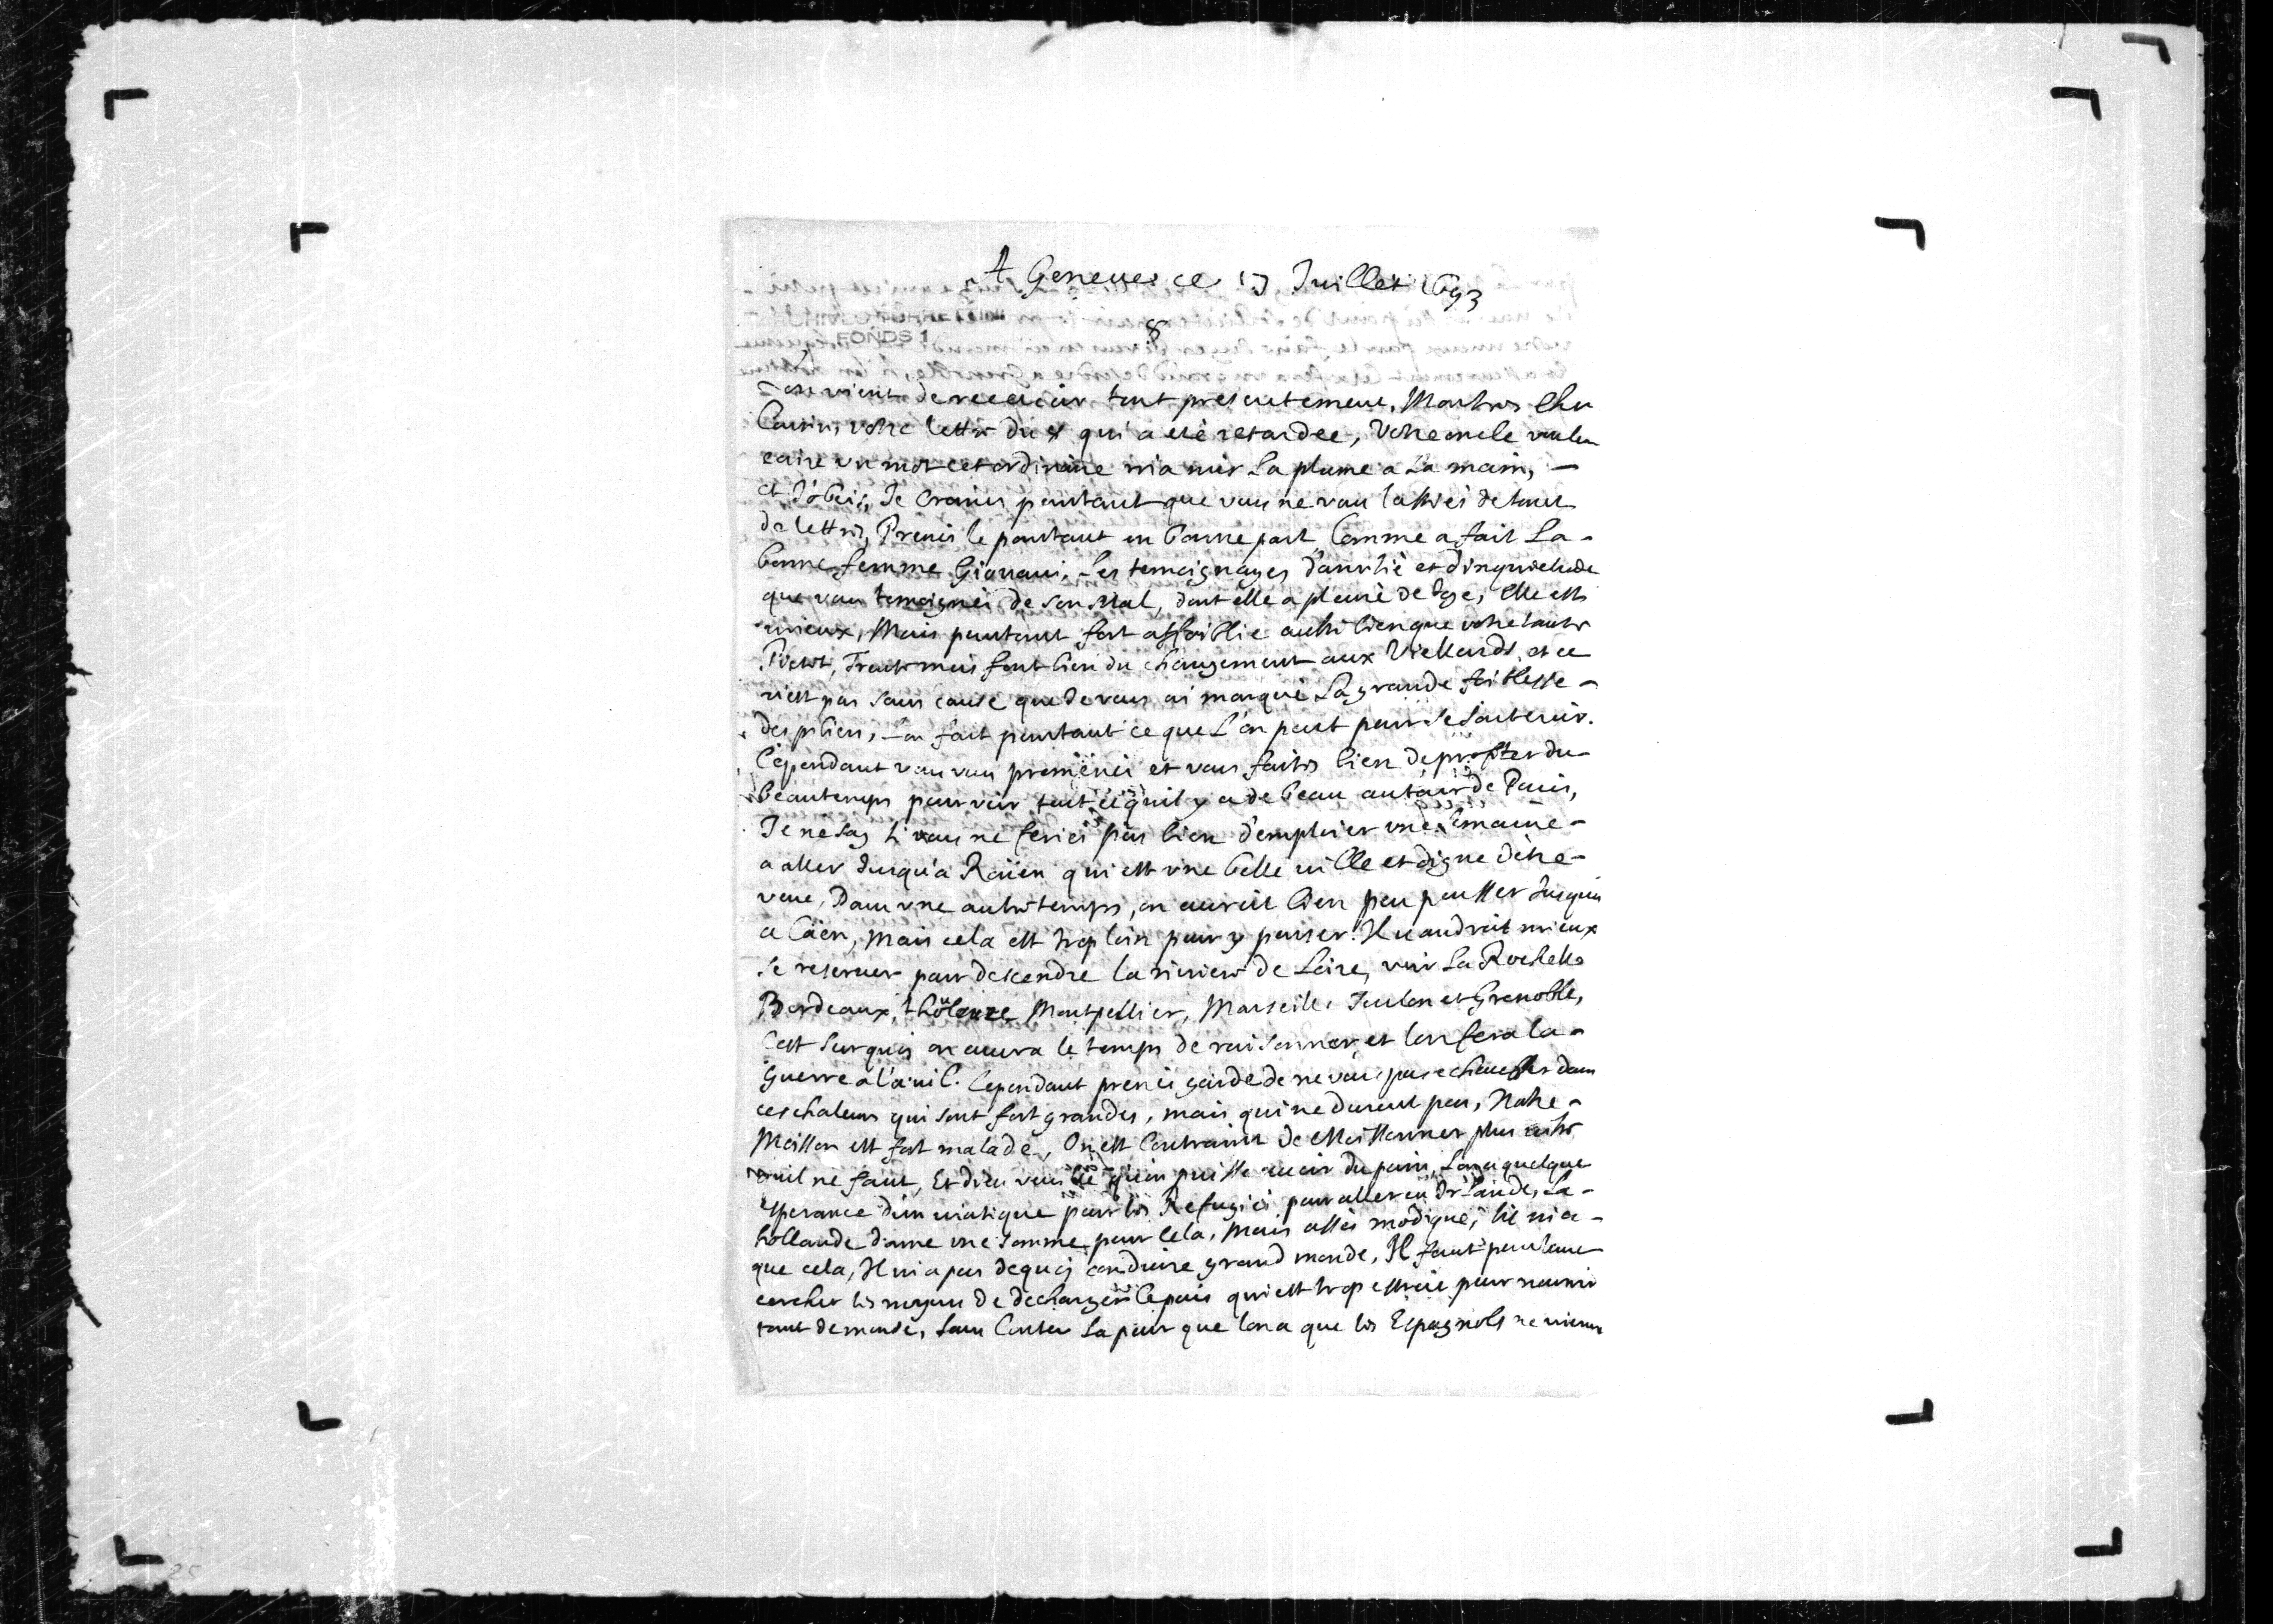 A Geneue ce 17 Juillet 1693
8
ARCHIVES TURRETTINI
FONDS 1
L'on vient de receuoir tout presentement, Mon tres cher
Cousin, votre lettre du 8 qui a esté retardée, Votre oncle voulant
ecrire un mot cet ordinaire m'a mis La plume a La main, -
et J'obeis, Je Crains pourtant que vous ne vous lassiés de tant
de lettres, Prenés le pourtant en bonne part Comme a fait La -
bonne femme Giouani, Les temoignages d'amitié et d'inquietude
que vous temoignés de son Mal, dont elle a pleuré de Joye, Elle est
mieux, Mais pourtant fort affoiblie aussi bien que votre tante
Pictet, Trente mois font bien du changement aux Viellards, et ce
n'est pas sans cause que Je vous ai marqué La grande foiblesse -
des piliers, L'on fait pourtant ce que L'on peut pour se soutenir.
Cependant vous vous promenés et vous faites bien de profiter du -
beau temps pour voir tout ce qu'il y a de beau autour de Paris,
Je ne say si vous ne feriés pas bien d'emploier une semaine -
a aller Jusqu'a Roüen qui est une belle uille et digne d'etre -
veue, Dans une autre temps, on auroit bien peu pousser Jusques
a Caën, Mais cela est trop loin pour y penser. Il uaudroit mieux
se reseruer pour descendre la riuiere de Loire, voir La Rochelle
Bordeaux, thoulouze Montpellier, Marseille, Toulon et Grenoble,
C'est surquoy on aura le temps de raisonner, et l'on fera la -
guerre a l'œuil. Cependant prenés garde de ne vous pas echauffer dans
ces chaleurs qui sont fort grandes, mais qui ne durent pas, Notre -
Moisson est fort malade, On est Contraint de Moissonner plus
qu'il ne faut, Et dieu veuille qu'on puisse auoir du pain, L'on a quelque
esperance d'un uiatique pour les Refugiés pour aller en Irlande, La -
hollande donne une somme pour cela, Mais assés modique, s'il n'i a -
que cela, Il n'i a pas dequoy conduire grand monde, Il faut pourtant
cercher les moyens de decharger le pais qui est trop estroit pour nourrir
tant de monde, sans Conter La peur que l'on a que les Espagnols ne vienne